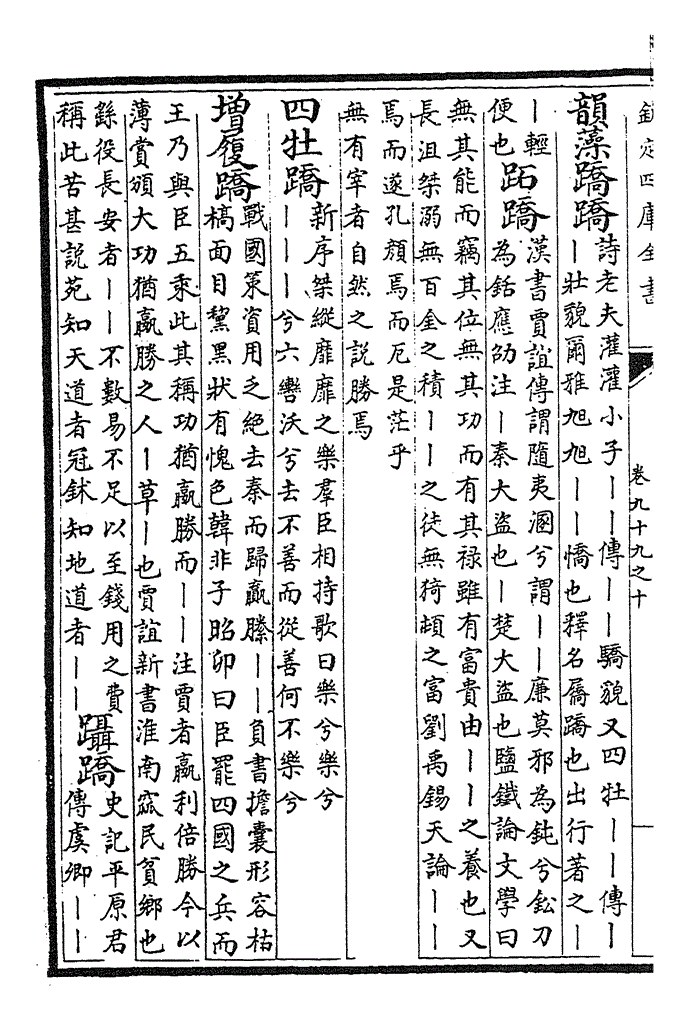 欽定四庫全書 卷九十九之十
韻藻蹻蹻
詩老夫灌灌小子丨丨傳丨丨驕貌又四牡丨丨傳丨
丨壯貌爾雅旭旭丨丨憍也釋名屩蹻也出行著之丨
丨輕
便也
跖蹻
漢書賈誼傳謂隨夷溷兮謂丨丨廉莫邪為鈍兮鈆刀
為銛應劭注丨秦大盜也丨楚大盜也鹽鐵論文學曰
無其能而竊其位無其功而有其禄雖有富貴由丨丨之養也又
長沮桀溺無百金之積丨丨之徒無猗頓之富劉禹錫天論丨丨
焉而遂孔顏焉而厄是茫乎
無有宰者自然之說勝焉
四牡蹻
新序桀縱靡靡之樂羣臣相持歌曰樂兮樂兮
丨丨丨兮六轡沃兮去不善而從善何不樂兮
增履蹻
戰國策資用乏絶去秦而歸羸縢丨丨負書擔囊形容枯
槁面目黧黑狀有愧色韓非子昭卯曰臣罷四國之兵而
王乃與臣五乘此其稱功猶羸勝而丨丨注賈者羸利倍勝今以
薄賞頒大功猶羸勝之人丨草丨也賈誼新書淮南窳民貧鄉也
繇役長安者丨丨不數易不足以至錢用之費
稱此苦甚說苑知天道者冠鉥知地道者丨丨
躡蹻
史記平原君
傳虞卿丨丨